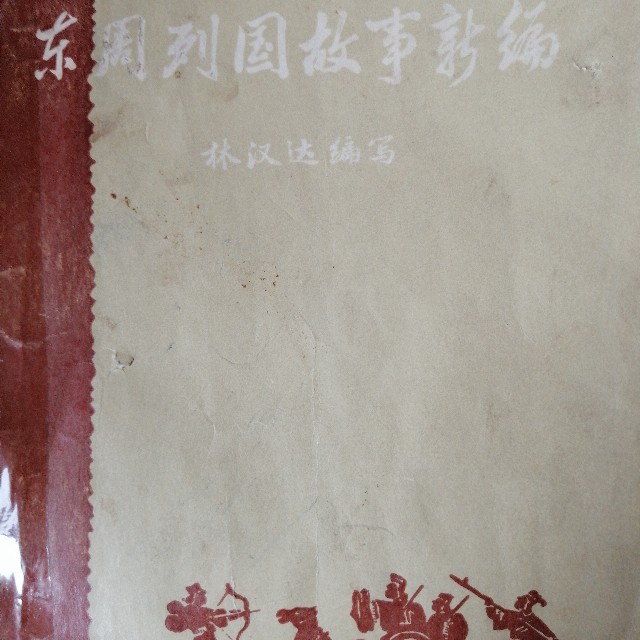 东周列国故事新编
林汉达编写